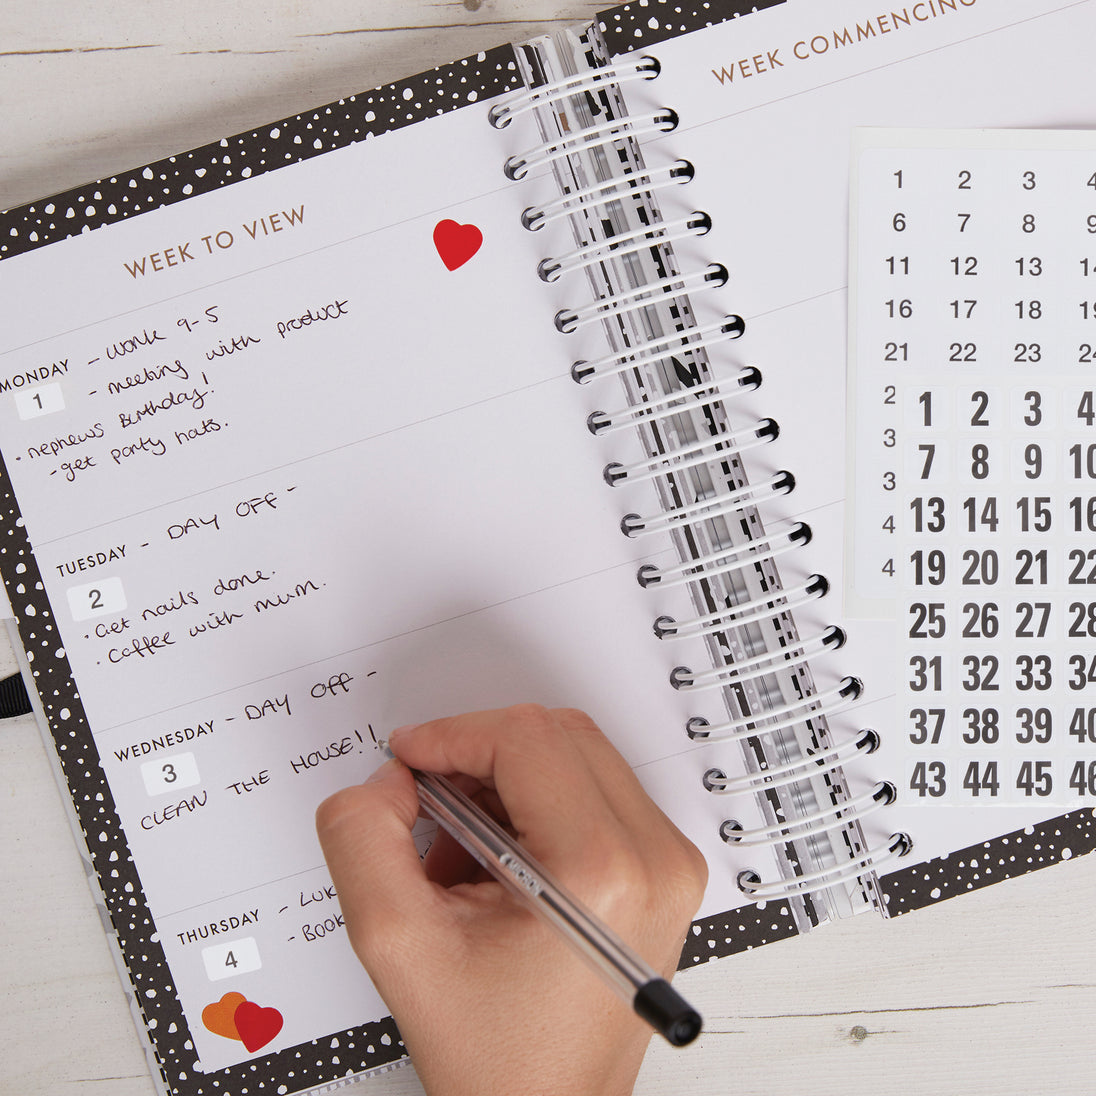 WEEK TO VIEW
MONDAY - work 9-5
1 - meeting with product
• nephews Birthday!
- get party hats.
TUESDAY - DAY OFF -
2
• Get nails done.
• coffee with mum.
WEDNESDAY - DAY OFF -
3
CLEAN THE HOUSE!!
THURSDAY - LUK
- BOOK
4
WEEK COMMENCING
1 2 3 4
6 7 8 9
11 12 13 14
16 17 18 19
21 22 23 24
2
3
3
4
4
1 2 3 4
7 8 9 10
13 14 15 16
19 20 21 22
25 26 27 28
31 32 33 34
37 38 39 40
43 44 45 46